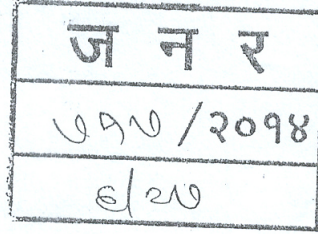 ज न र
७१७/२०१४
६/२७